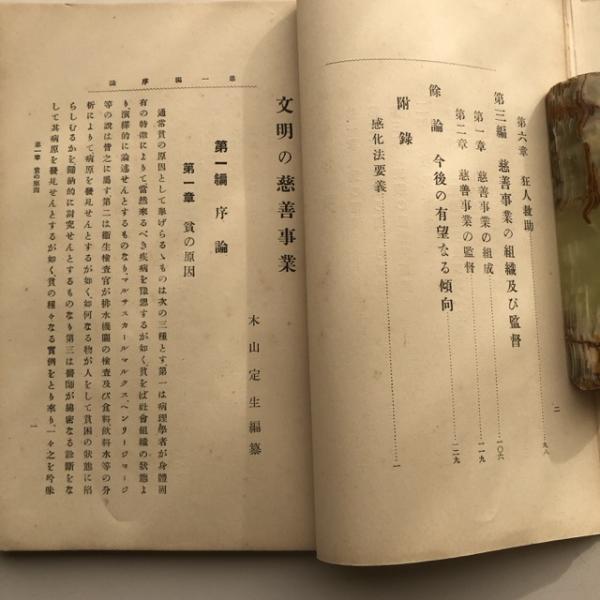 第六章 狂人救助……九八
第三編 慈善事業の組織及び監督……一〇六
第一章 慈善事業の組成……一一九
第二章 慈善事業の監督……一二九
餘論 今後の有望なる傾向
附錄
感化法要義……一
二
第一編 序論
文明の慈善事業
木山定生編纂
第一編 序論
第一章 貧の原因
通常貧の原因として擧げらるゝものは次の三種とす第一は病理學者が身體固
有の特徵によりて當然來るべき疾病を豫想するが如く貧をば社會組織の狀態よ
り、演繹的に論述せんとするものなり、マルサスカールマルクス、ヘンリージョージ
等の說は皆之に屬す第二は衛生檢査官が排水機關の檢査及び食料飮料水等の分
析によりて病原を發見せんとするが如く、如何なる物が人をして貧困の狀態に陷
らしむるかを歸納的に討究せんとするものなり第三は醫師が綿密なる診斷をな
して其病原を發見せんとするが如く、貧の種々なる實例をとり來り、一々之を吟味
第一章 貧の原因
一